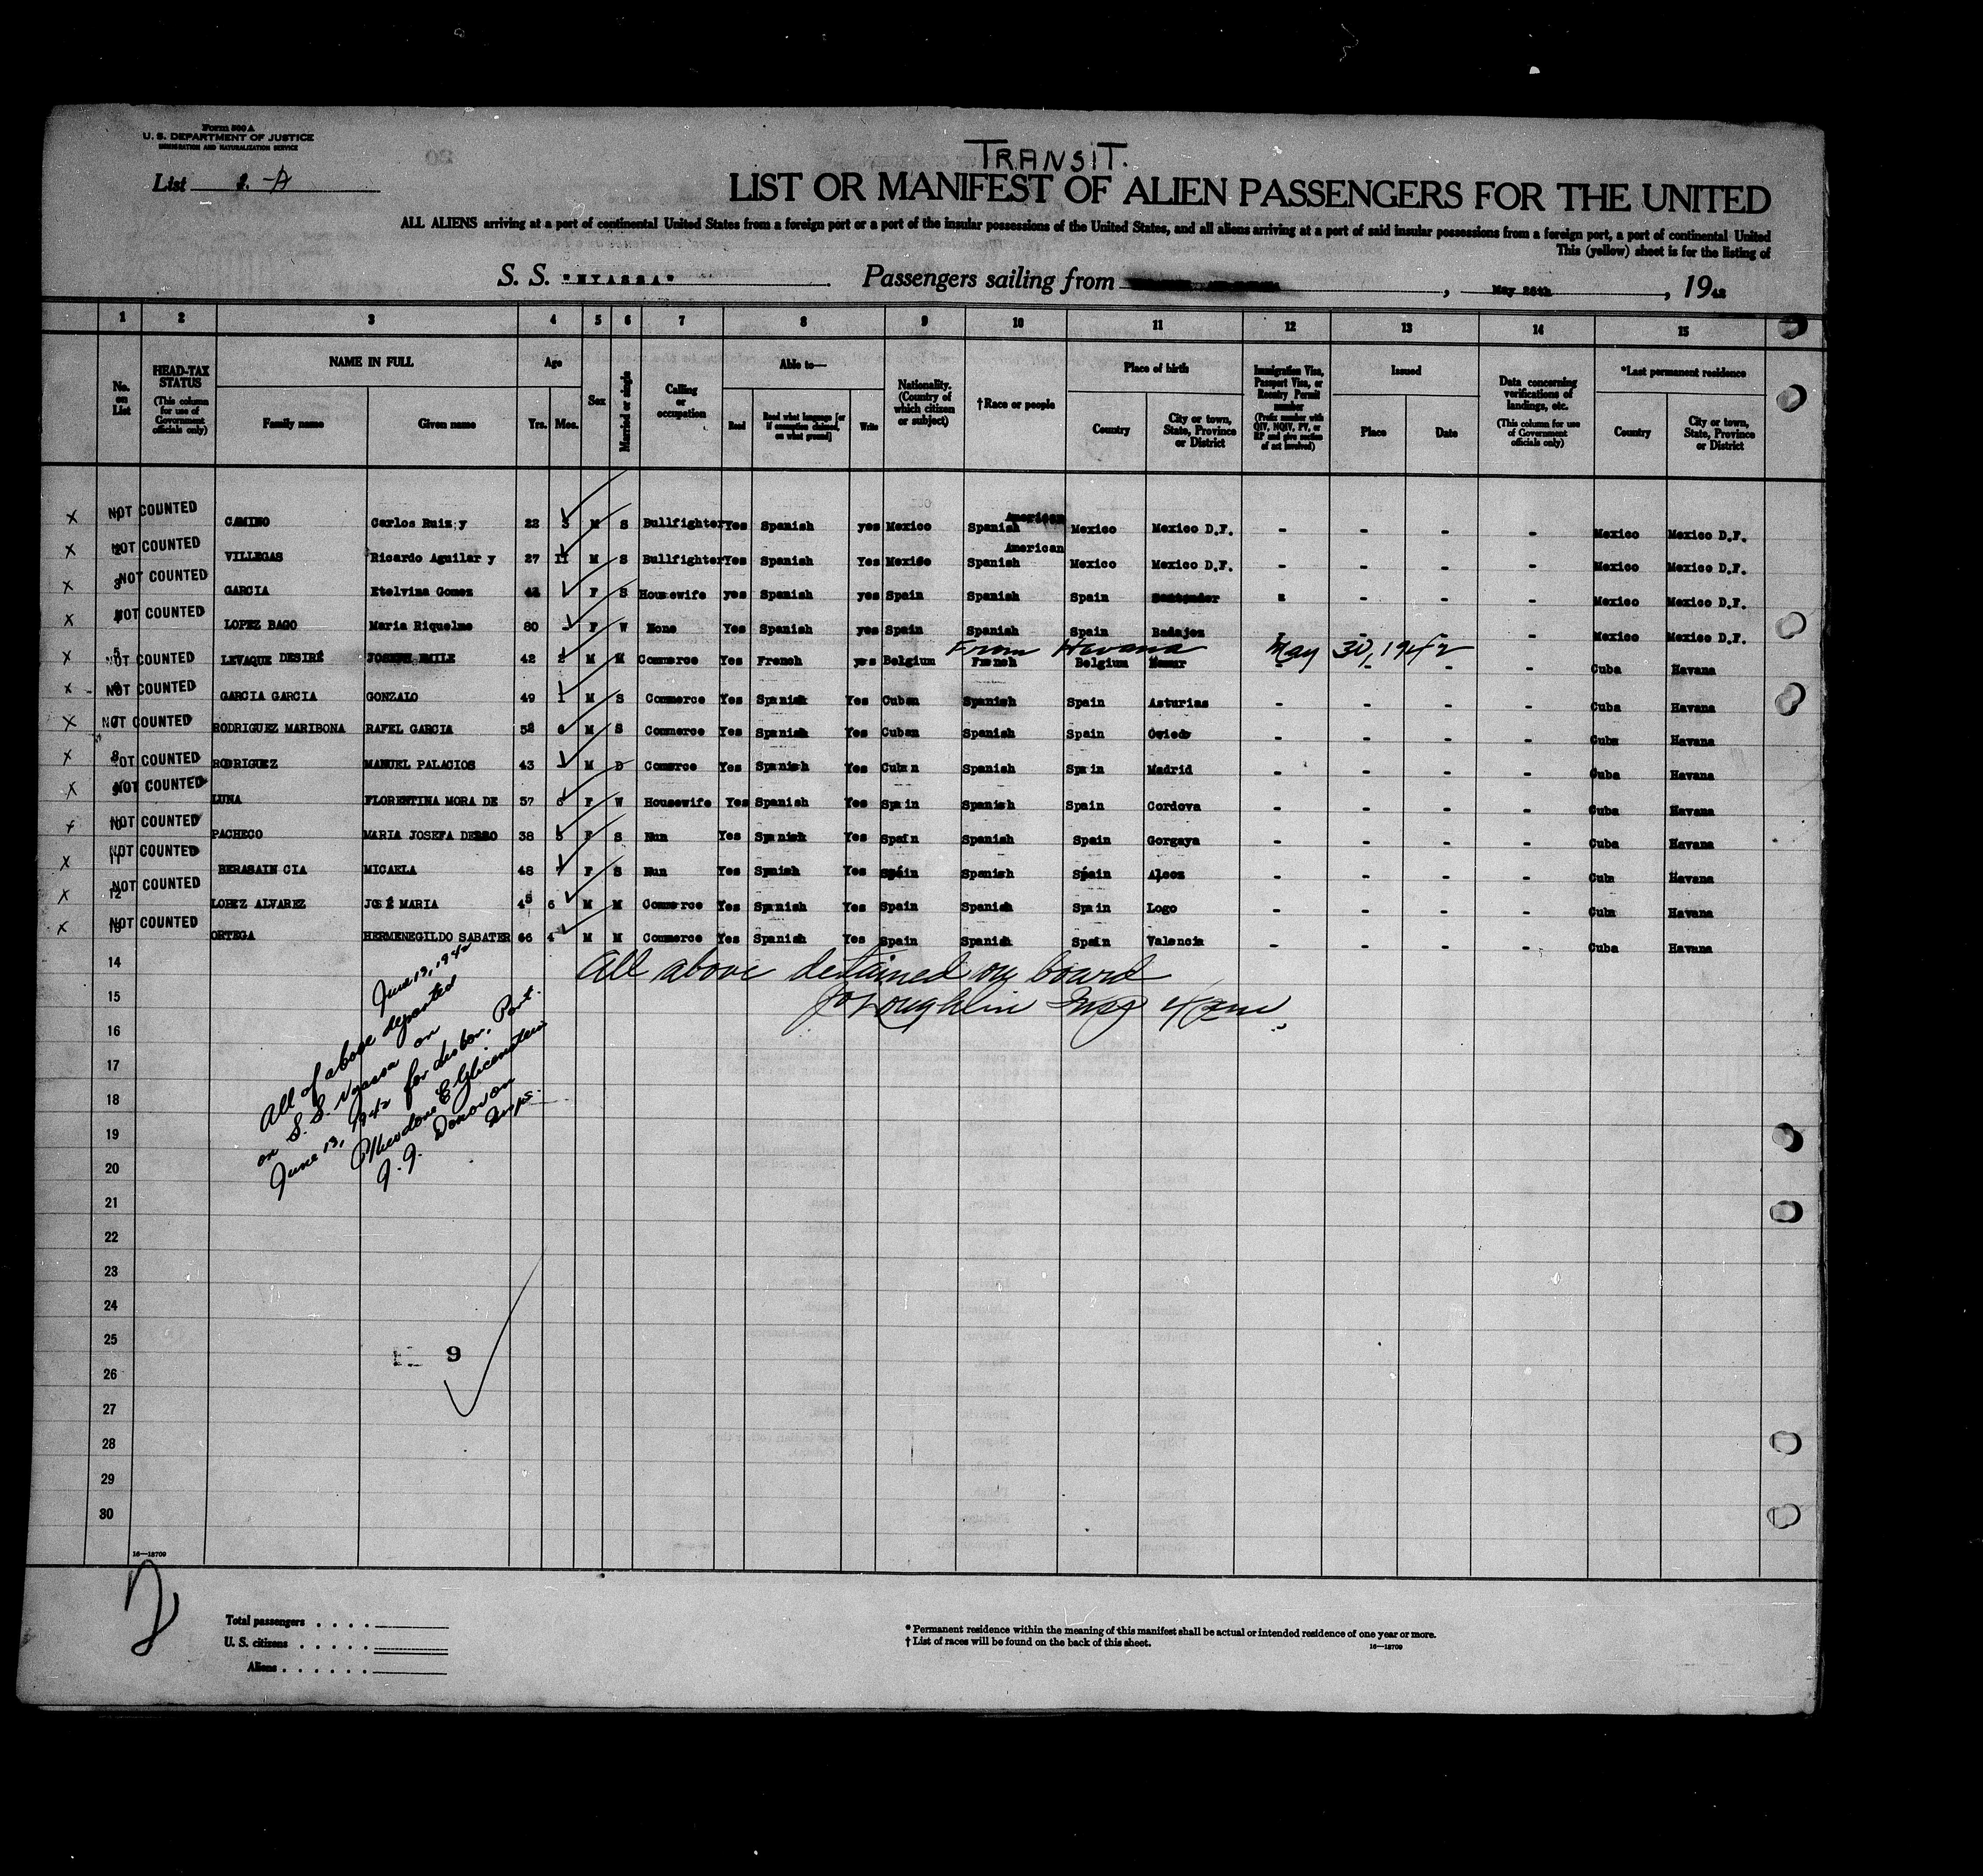 Form 500 A
U. S. DEPARTMENT OF JUSTICE
IMMIGRATION AND NATURALIZATION SERVICE
List 2. -A
TRANSIT.
LIST OR MANIFEST OF ALIEN PASSENGERS FOR THE UNITED
ALL ALIENS arriving at a port of continental United States from a foreign port or a port of the insular possessions of the United States, and all aliens arriving at a port of said insular possessions from a foreign port, a port of continental United
This (yellow) sheet is for the listing of
S. S. "NYASSA" Passengers sailing from , May 26th , 1942
1 2 3 4 5 6 7 8 9 10 11 12 13 14 15
No. on List
HEAD-TAX STATUS (This column for use of Government officials only)
NAME IN FULL
Family name Given name
Age
Yrs. Mos.
Sex
Married or single
Calling or occupation
Able to—
Read
Read what language [or if exemption claimed, on what ground]
Write
Nationality. (Country of which citizen or subject)
†Race or people
Place of birth
Country
City or town, State, Province or District
Immigration Visa, Passport Visa, or Reentry Permit number (Prefix number with QIV, NQIV, PV, or RP and give section of act involved)
Issued
Place Date
Data concerning verifications of landings, etc. (This column for use of Government officials only)
*Last permanent residence
Country
City or town, State, Province or District
x NOT COUNTED CAMINO Carlos Ruiz y 22 3 M S Bullfighter Yes Spanish yes Mexico Spanish American Mexico Mexico D.F. - - - - Mexico Mexico D.F.
x NOT COUNTED VILLEGAS Ricardo Aguilar y 27 11 M S Bullfighter Yes Spanish Yes Mexico Spanish American Mexico Mexico D.F. - - - - Mexico Mexico D.F.
x 3 NOT COUNTED GARCIA Etelvina Gomez F S Housewife yes Spanish yes Spain Spanish Spain Santander - - - - Mexico Mexico D.F.
x NOT COUNTED LOPEZ BAGO Maria Riquelme 80 F W None Yes Spanish yes Spain Spanish Spain Badajoz - - - - Mexico Mexico D.F.
From Havana May 30, 1942
x 5 NOT COUNTED LEVAQUE DESIRÉ JOSEPH EMILE 42 2 M M Commerce Yes French yes Belgium French Belgium Namur - - - Cuba Havana
x - NOT COUNTED GARCIA GARCIA GONZALO 49 1 M S Commerce Yes Spanish Yes Cuban Spanish Spain Asturias - - - - Cuba Havana
x NOT COUNTED RODRIGUEZ MARIBONA RAFEL GARCIA 52 6 M S Commerce Yes Spanish Yes Cuban Spanish Spain Oviedo - - - - Cuba Havana
x 8 NOT COUNTED RODRIGUEZ MANUEL PALACIOS 43 M D Comerce Yes Spanish Yes Cuban Spanish Spain Madrid - - - - Cuba Havana
x NOT COUNTED LUNA FLORENTINA MORA DE 57 6 F W Housewife Yes Spanish Yes Spain Spanish Spain Cordova - - - - Cuba Havana
x 10 NOT COUNTED PACHECO MARIA JOSEFA 38 5 F S Nun Yes Spanish Yes Spain Spanish Spain Gorgaya - - - - Cuba Havana
x 11 NOT COUNTED BERASAIN CIA MICAELA 48 F S Nun Yes Spnish Yes Spain Spanish Spain - - - - Cuba Havana
x 12 NOT COUNTED LOPEZ ALVAREZ JOSÉ MARIA 45 6 M M Commerce Yes Spanish Yes Spain Spanish Spain Logo - - - - Cuba Havana
x 13 NOT COUNTED ORTEGA HERMENEGILDO SABATER 66 4 M M Commerce Yes Spanish Yes Spain Spanish Spain Valencia - - - - Cuba Havana
All above detained on board
Loughlin Insp
June 13, 1942
All of above departed
on S. S. Nyassa on
June 13, 1942 for Lisbon, Port.
Theodore E Glicenstein
J. J. Donovan
Insps.
14
15
16
17
18
19
20
21
22
23
24
25
26
27
28
29
30
9
16—18709
2
Total passengers . . . .
U. S. citizens . . . . .
Aliens . . . . . .
* Permanent residence within the meaning of this manifest shall be actual or intended residence of one year or more.
† List of races will be found on the back of this sheet.
16—18709